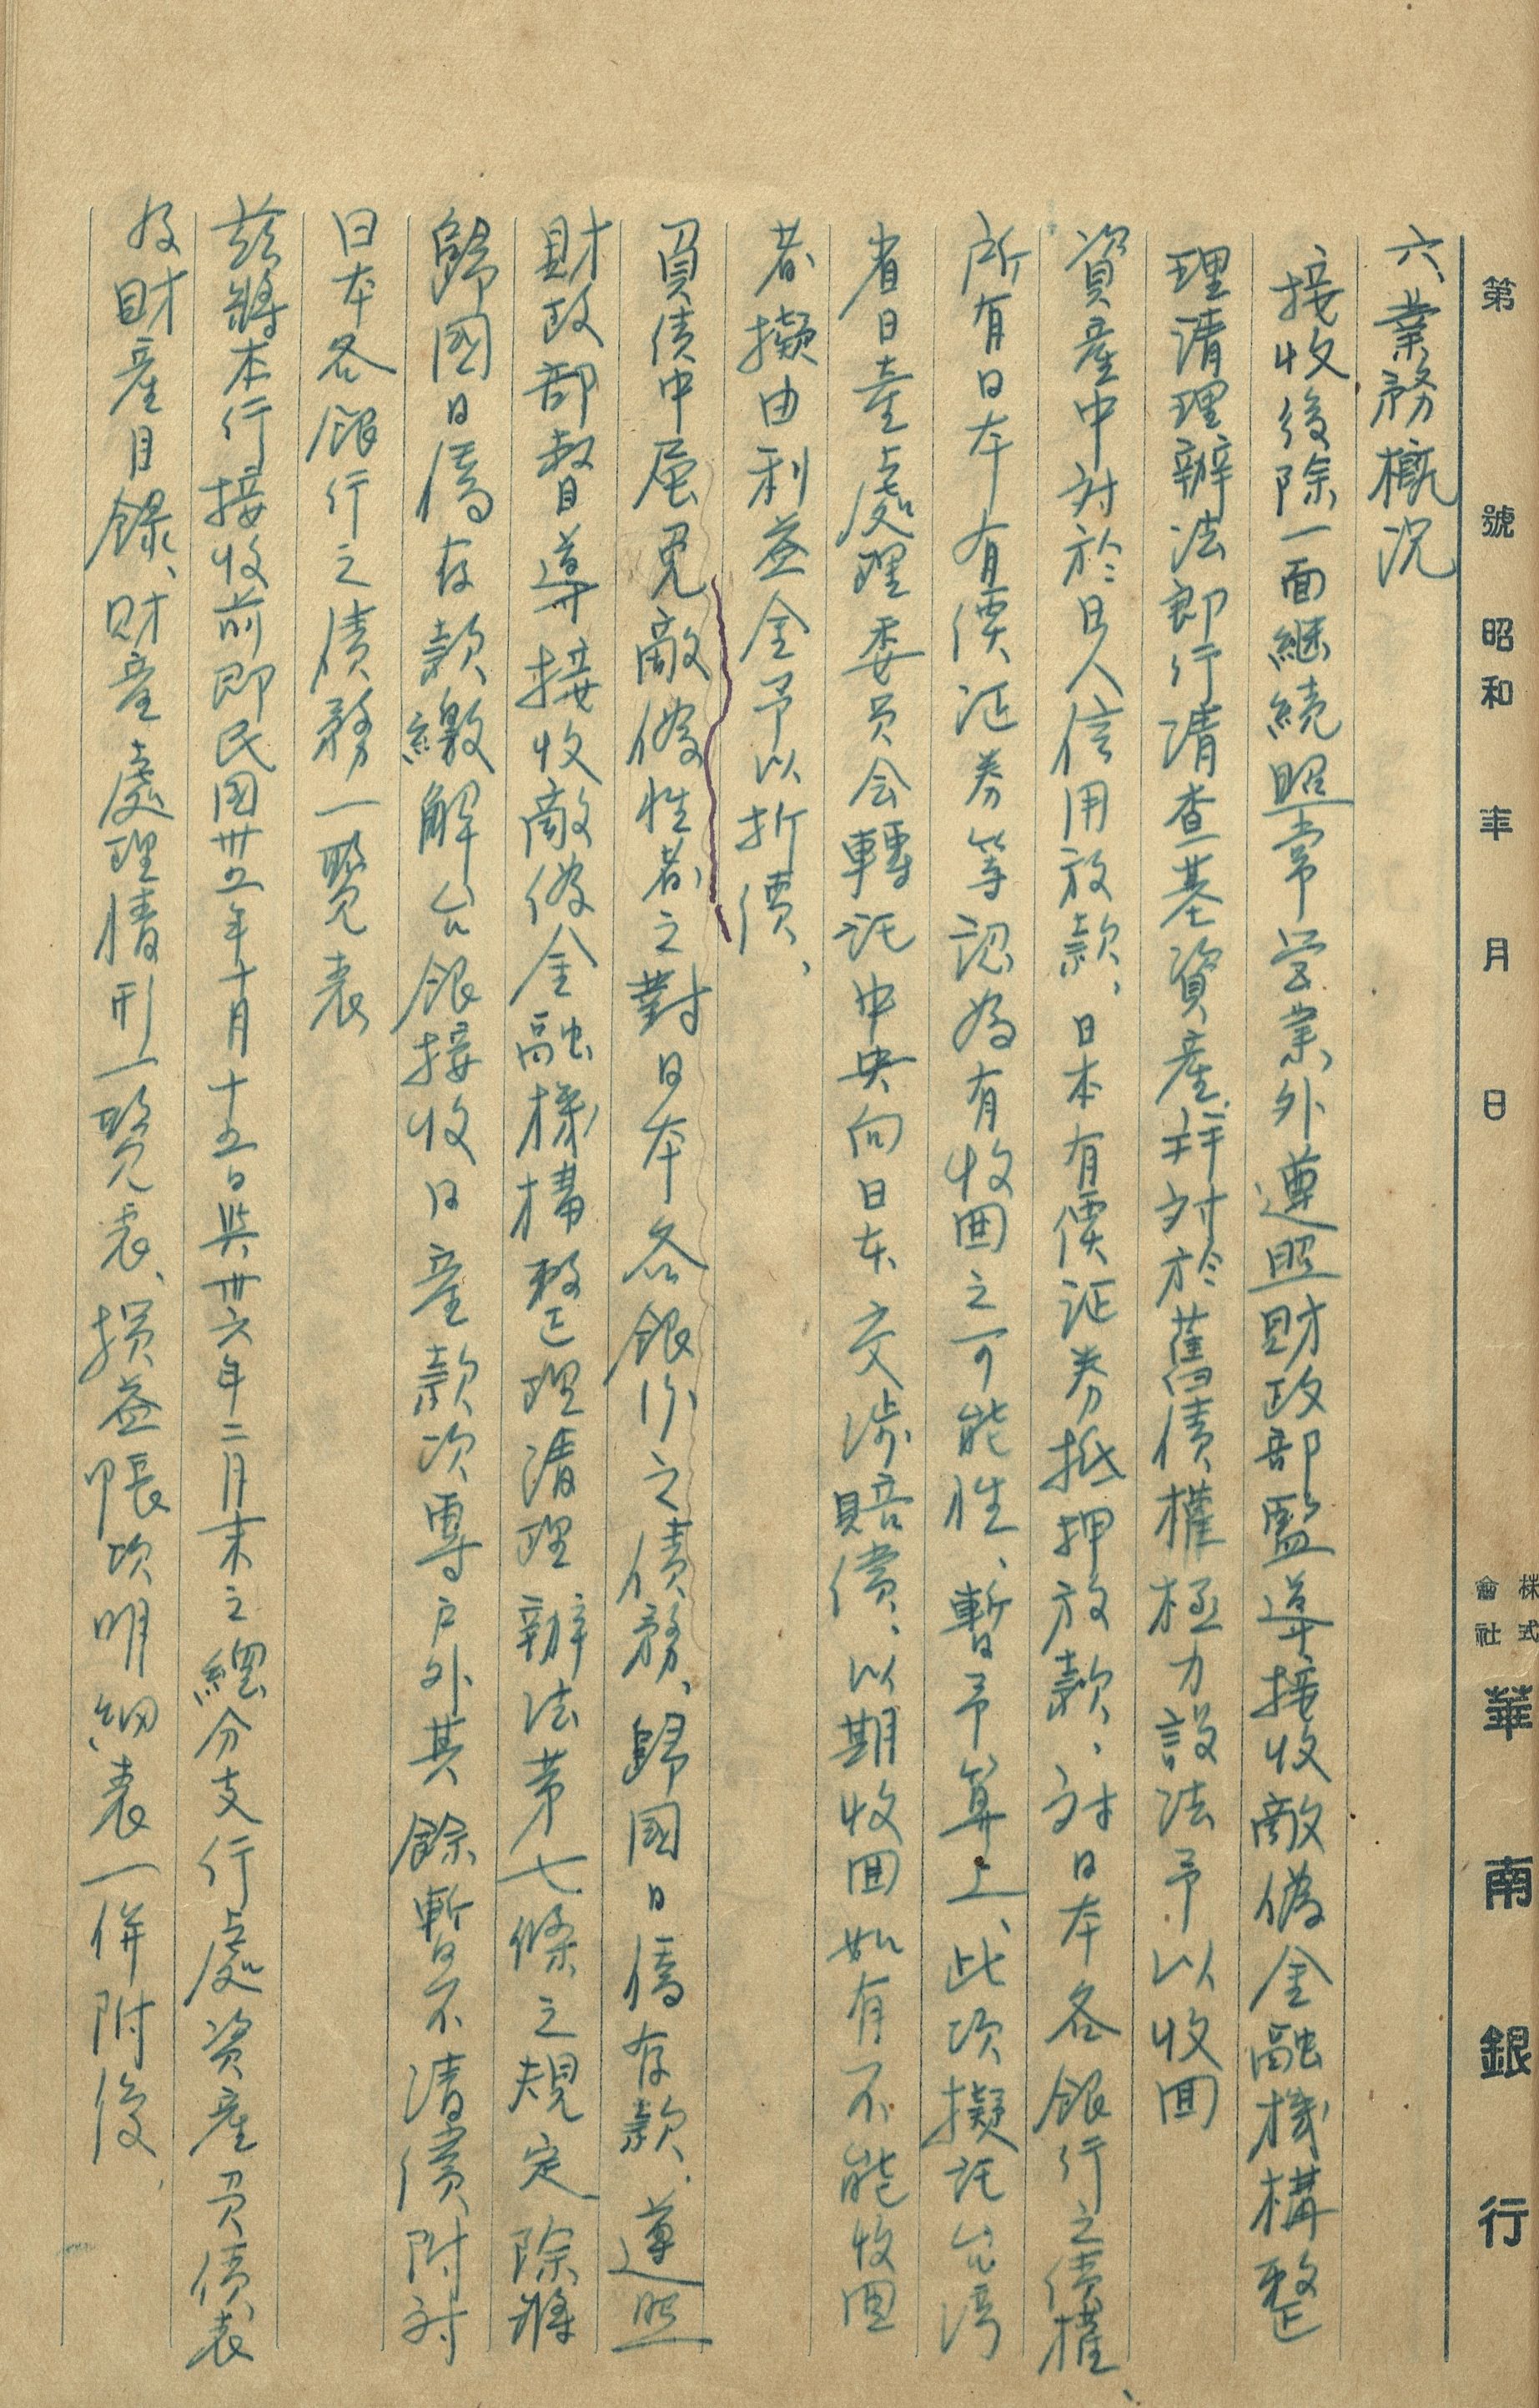 第 號 昭和 年 月 日 株式會社 華南銀行
六、業務概況
接收後除一面継続照常営業外遵照財政部監導接收敵偽金融機構整
理清理辦法即行清查基資產並対於舊債權極力設法予以收囬
資產中対於日人信用放款、日本有價证券抵押放款、対日本各銀行之債權、
所有日本有價证券等認為有收囬之可能性、暫予算上、此項擬託台湾
省日產處理委员会轉託中央向日本交涉賠償、以期收囬如有不能收囬
者擬由利益金予以折價、
負債中屬免敵偽性者之對日本各銀行之債務、歸國日僑存款、遵照
財政部督導接收敵偽金融機構整理清理辦法第七條之規定除將
歸國日僑存款繳解台銀接收日產款項專户外其餘暫不清償、附対
日本各銀行之債務一覽表
茲將本行接收前即民国卅五年十月十五日與卅六年二月末之總分支行處資產負債表
及財產目錄、財產處理情形一覽表、損益帳項明細表一併附後、